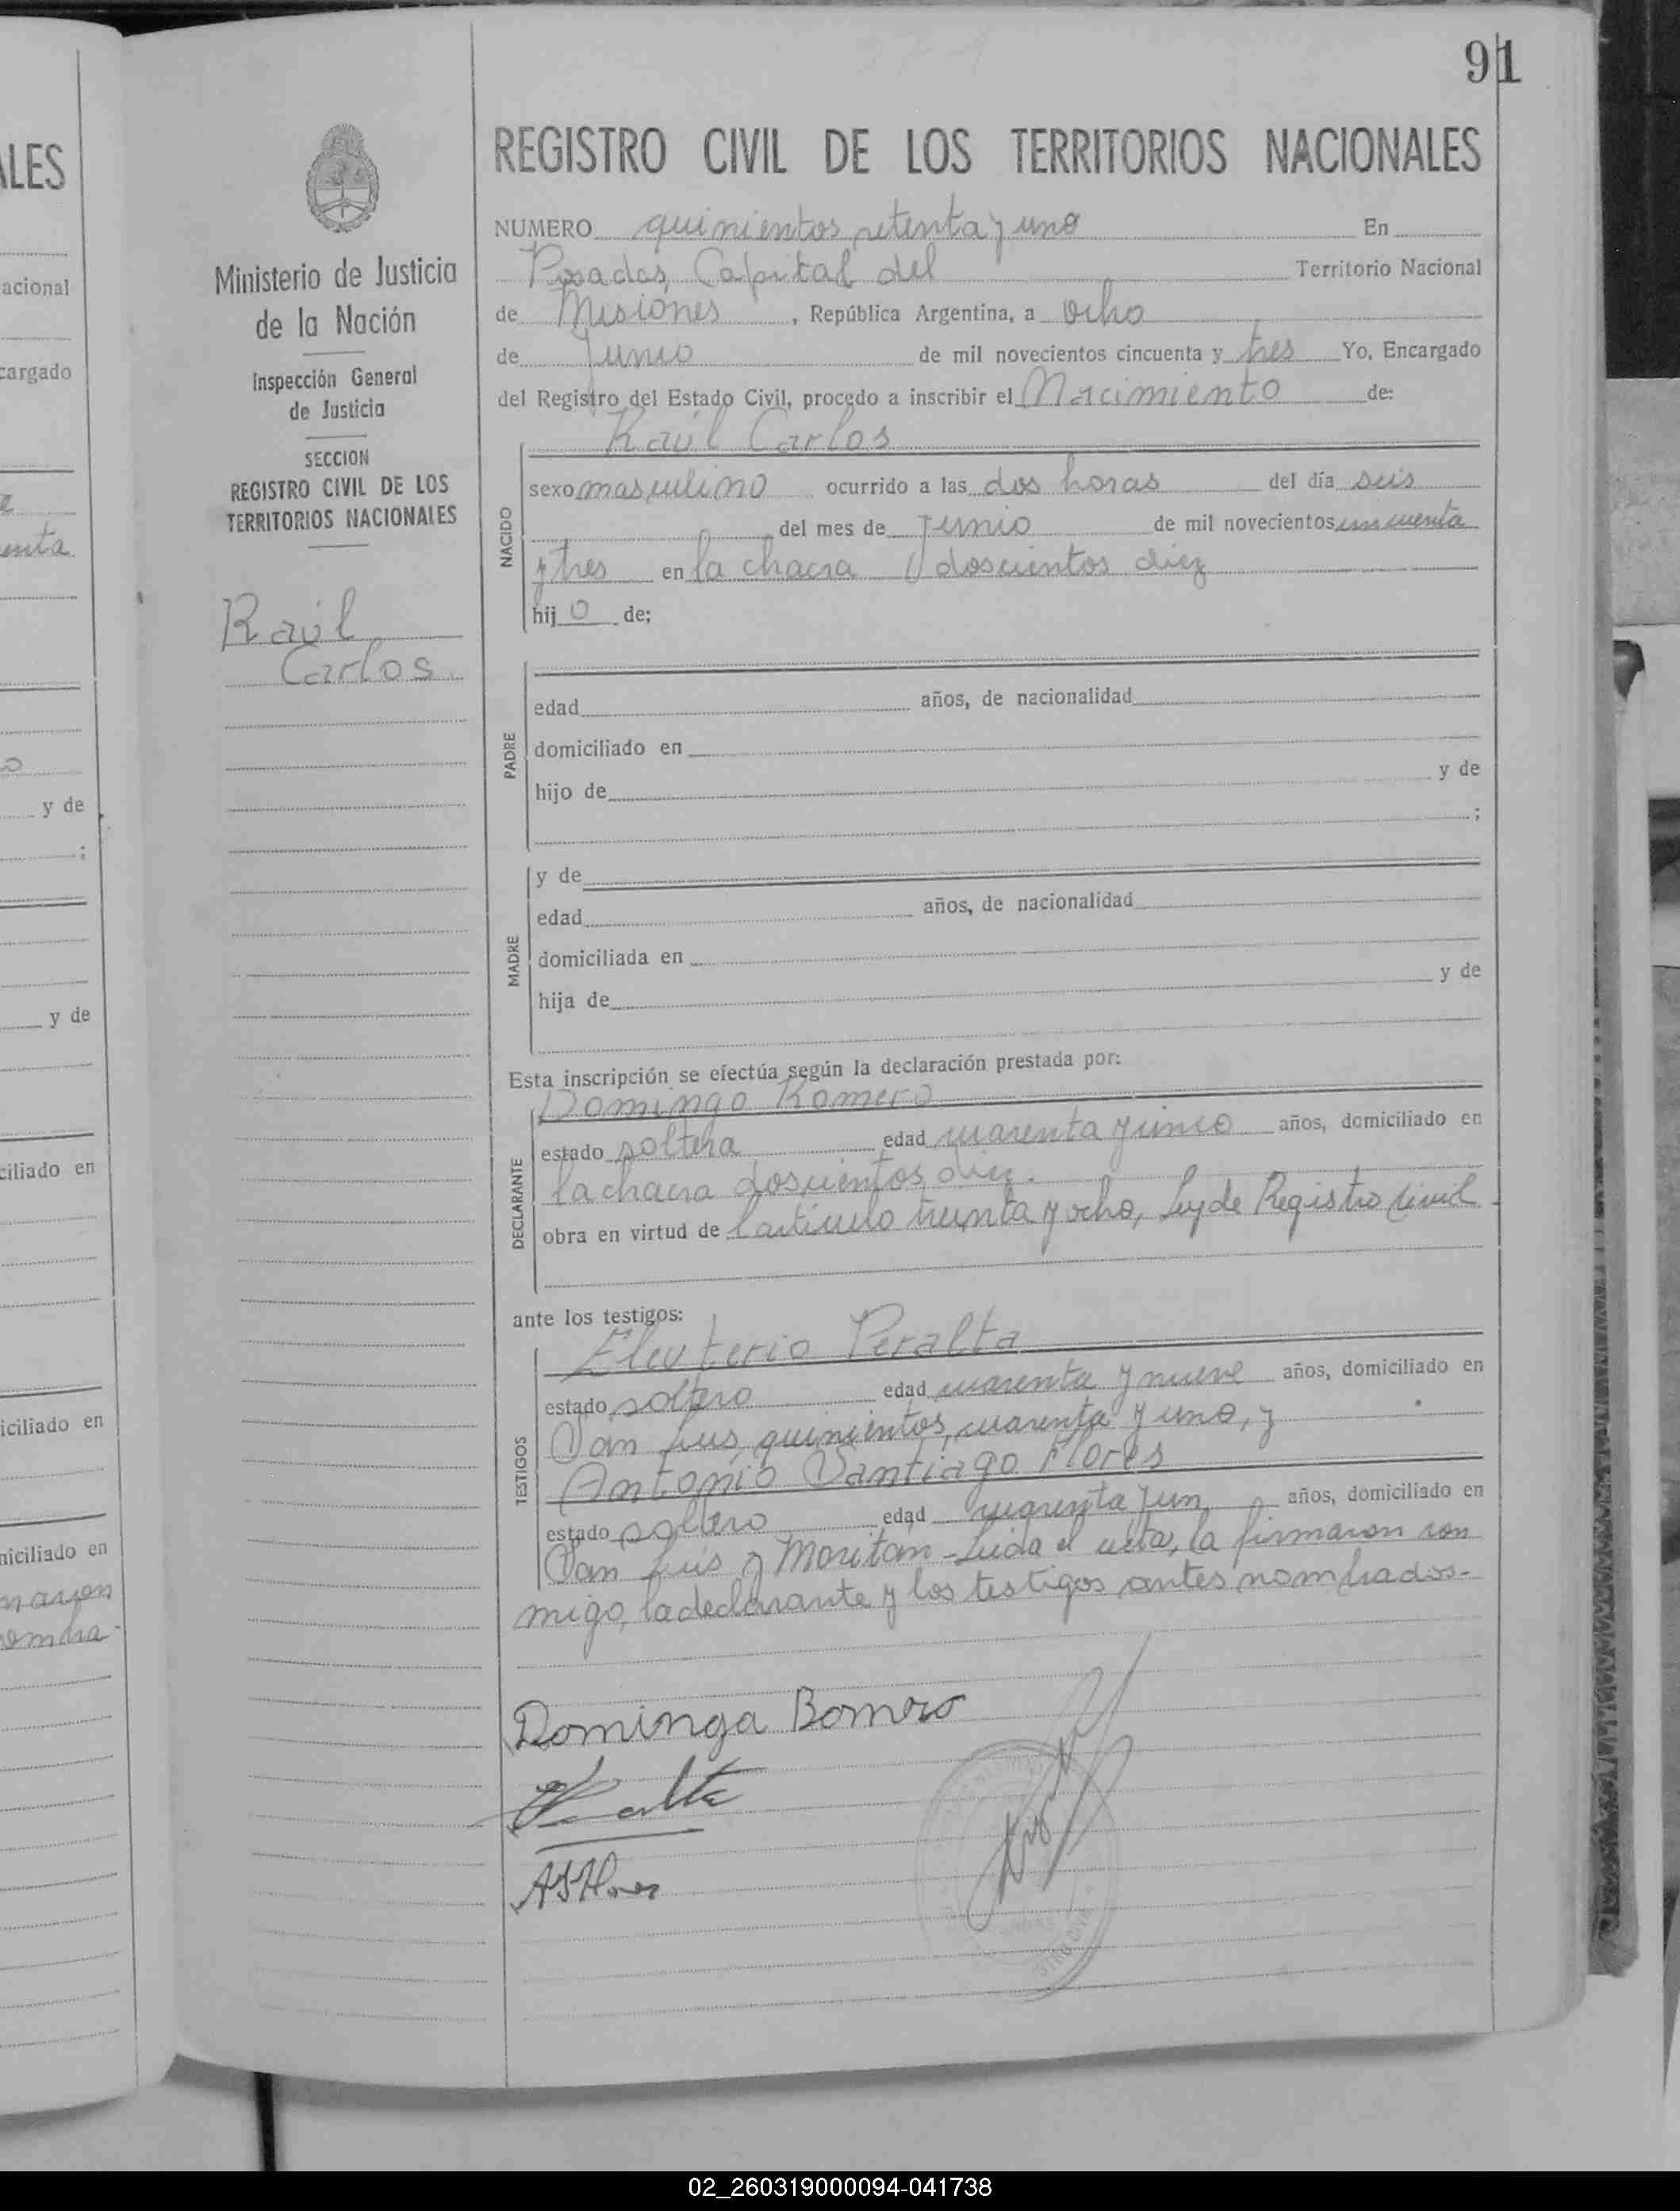 91
REGISTRO CIVIL DE LOS TERRITORIOS NACIONALES
NUMERO quinientos setenta y uno En
Posadas, Capital del Territorio Nacional
de Misiones, República Argentina, a ocho
de Junio de mil novecientos cincuenta y tres Yo, Encargado
del Registro del Estado Civil, procedo a inscribir el Nacimiento de:
Raúl Carlos
NACIDO
sexo masculino ocurrido a las dos horas del día seis
del mes de Junio de mil novecientos cincuenta
y tres en la chacra doscientos diez
hijo de;
PADRE
edad años, de nacionalidad
domiciliado en
hijo de y de
;
MADRE
y de
edad años, de nacionalidad
domiciliada en
hija de y de
Esta inscripción se efectúa según la declaración prestada por:
DECLARANTE
Domingo Romero
estado soltera edad cuarenta y cinco años, domiciliado en
la chacra doscientos diez.
obra en virtud de l artículo treinta y ocho, Ley de Registro Civil
ante los testigos:
TESTIGOS
Eleuterio Peralta
estado soltero edad cuarenta y nueve años, domiciliado en
San Luis quinientos cuarenta y uno, y
Antonio Santiago Flores
estado soltero edad cuarenta y un años, domiciliado en
San Luis y Moritán - Leida el acta, la firmaron con
migo, la declarante y los testigos antes nombrados.-
Dominga Romero
ASFlores
Ministerio de Justicia
de la Nación
Inspección General
de Justicia
SECCION
REGISTRO CIVIL DE LOS
TERRITORIOS NACIONALES
Raúl
Carlos
ALES
acional
cargado
enta
y de
;
y de
ciliado en
iciliado en
niciliado en
maron
02_260319000094-041738